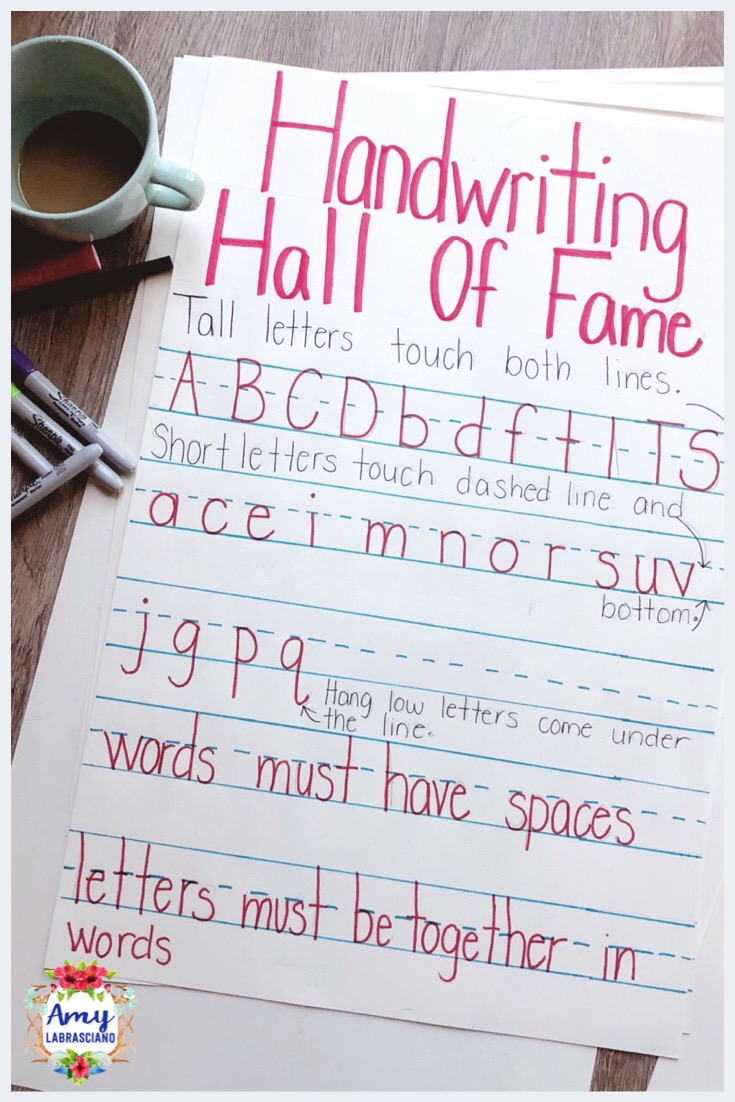 Handwriting
Hall Of Fame
Tall letters touch both lines.
A B C D b d f t l T S
Short letters touch dashed line and
a c e i m n o r s u v
bottom.
j g p q
Hang low letters come under
the line.
words must have spaces
letters must be together in
words
Sharpie
Sharpie
Amy
LABRASCIANO